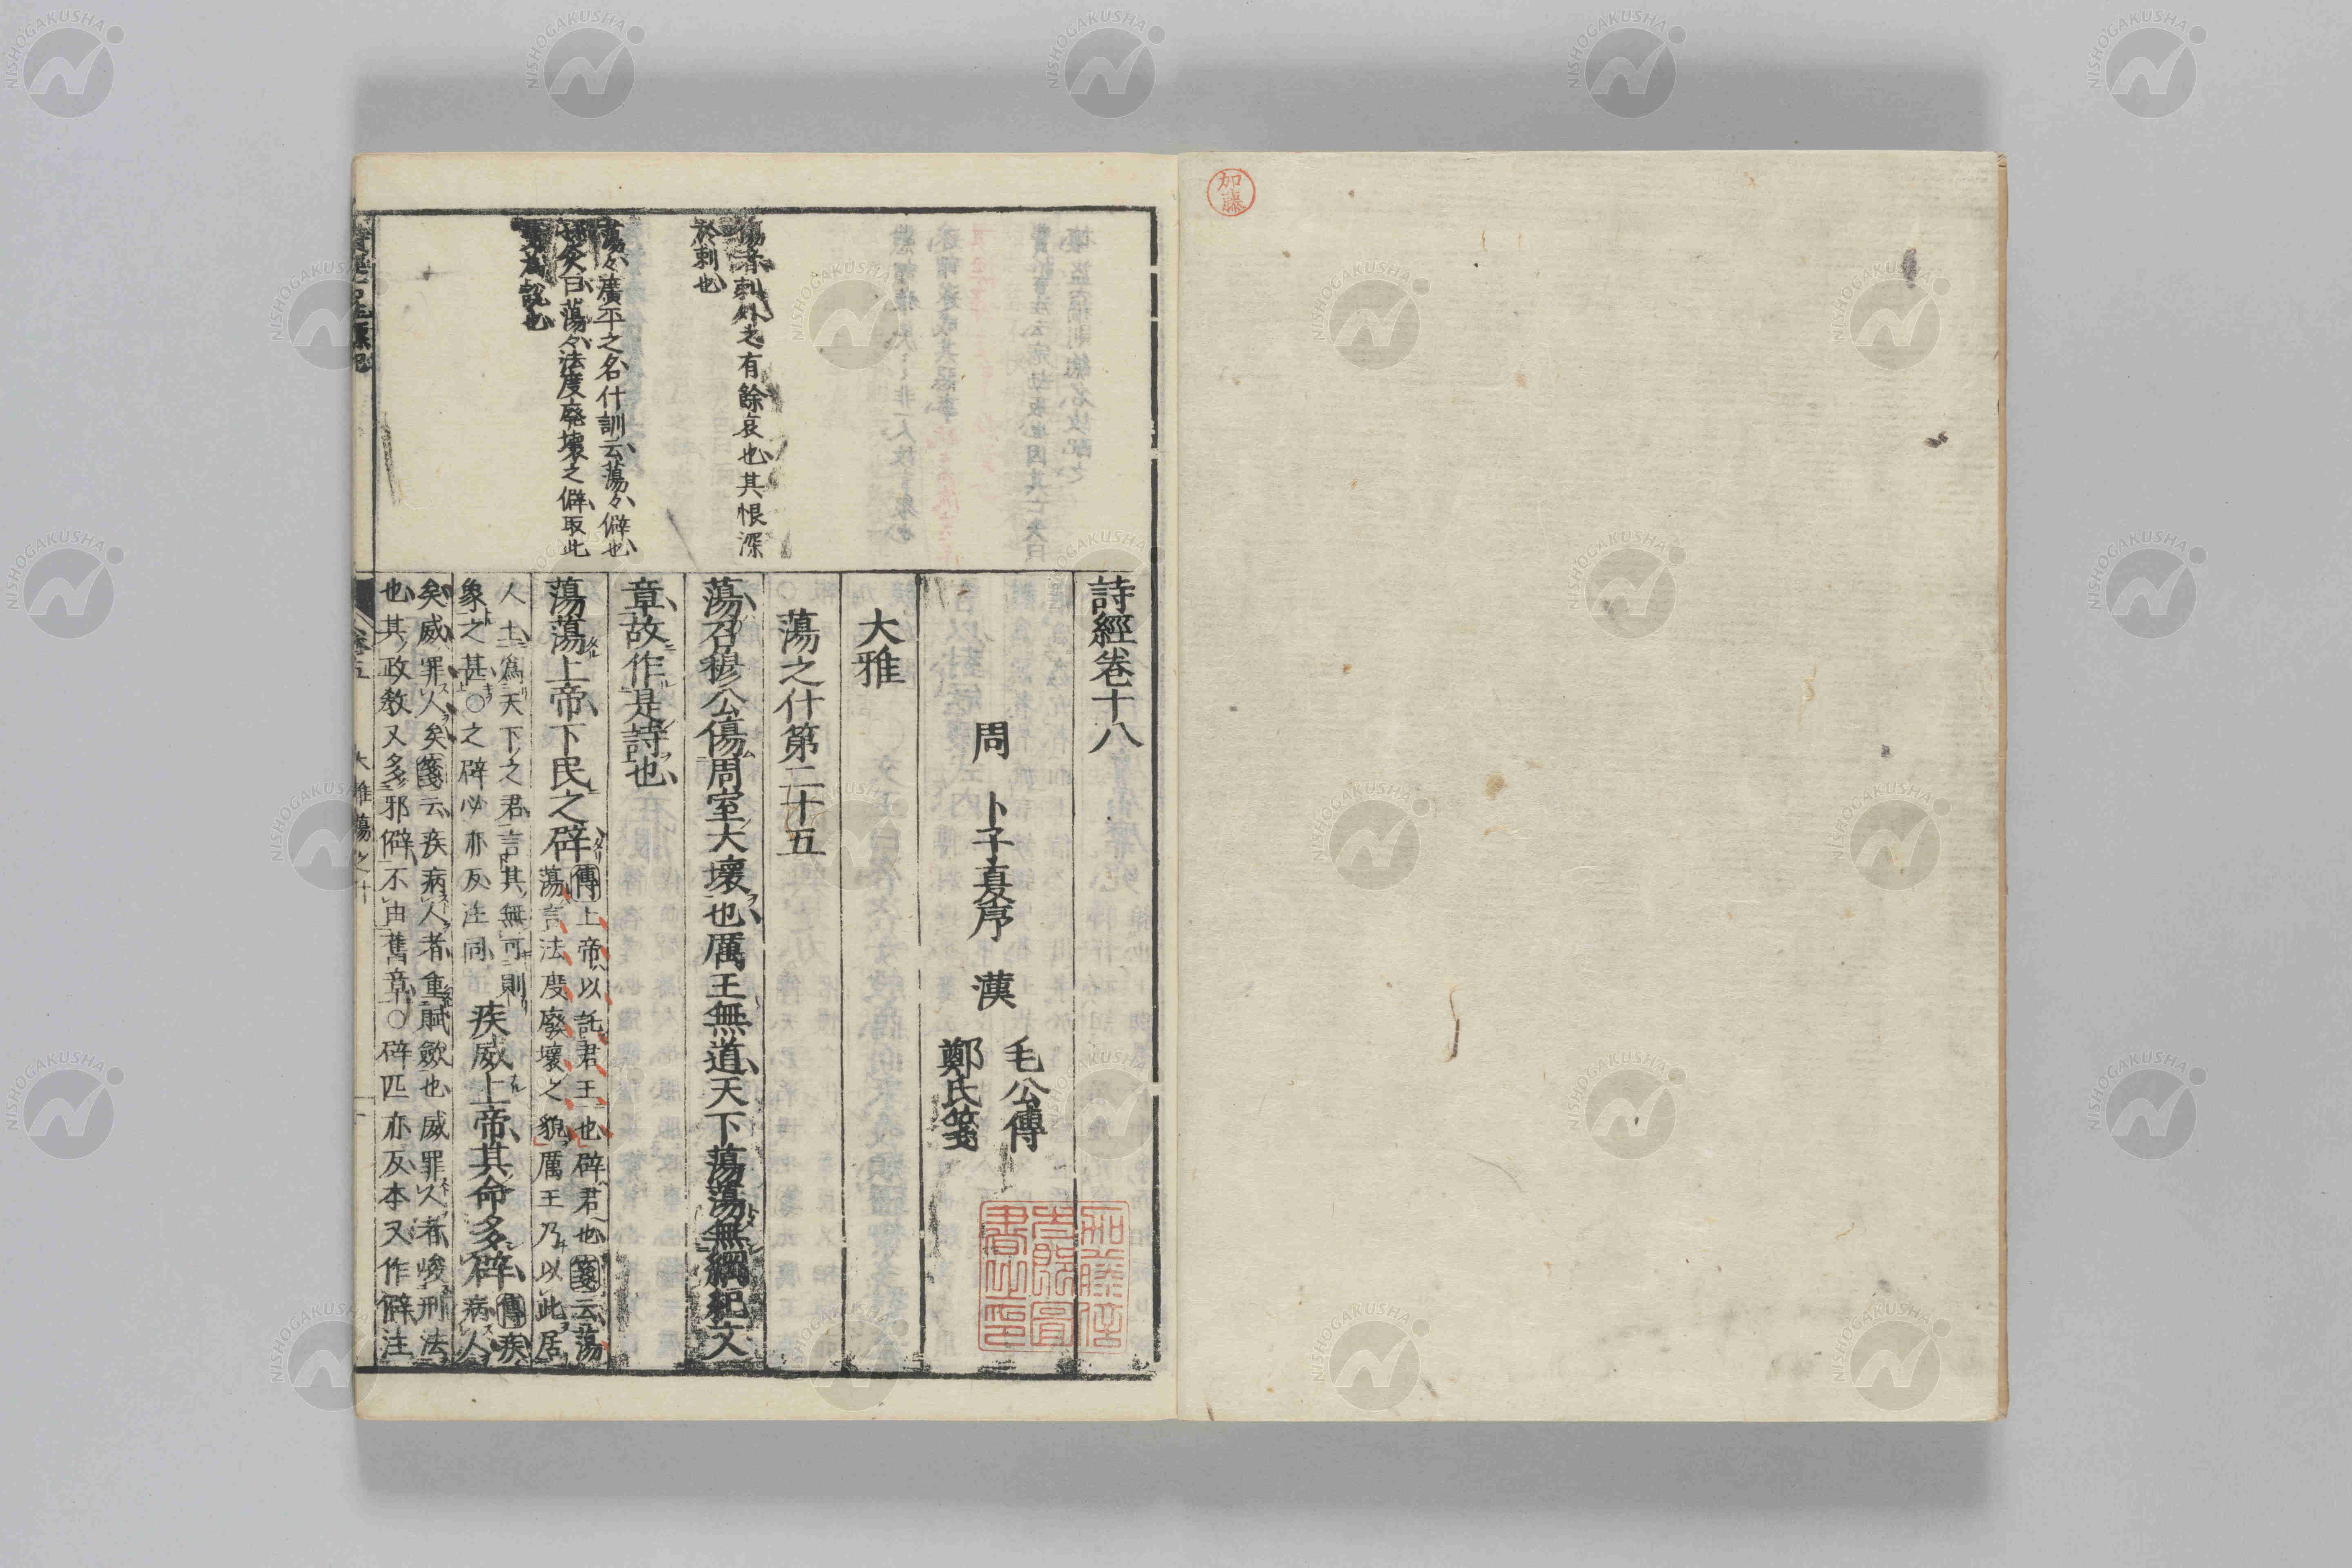 加藤
詩經卷十八
周 卜子夏序 漢 毛公傳
鄭氏箋
大雅
蕩之什第二十五
蕩召穆公傷周室大壞也厲王無道天下蕩蕩無綱紀文
章故作是詩也
蕩蕩上帝下民之辟
傳上帝以託君王也辟君也箋云蕩
蕩言法度廢壞之貌厲王乃以此居
人上為天下之君言其無可則
象之甚○之辟必亦反注同
疾威上帝其命多辟
傳疾病人
矣威罪人矣箋云疾病人者重賦斂也威罪人者峻刑法
也其政教又多邪僻不由舊章○辟匹亦反本又作僻注
蕩者刺外之有餘哀也其恨深
於刺也
蕩々廣平之名什訓云蕩々僻也
曰蕩々法度廢壞之僻取此
為說也
卷五
大雅蕩之什
NISHOGAKUSHA